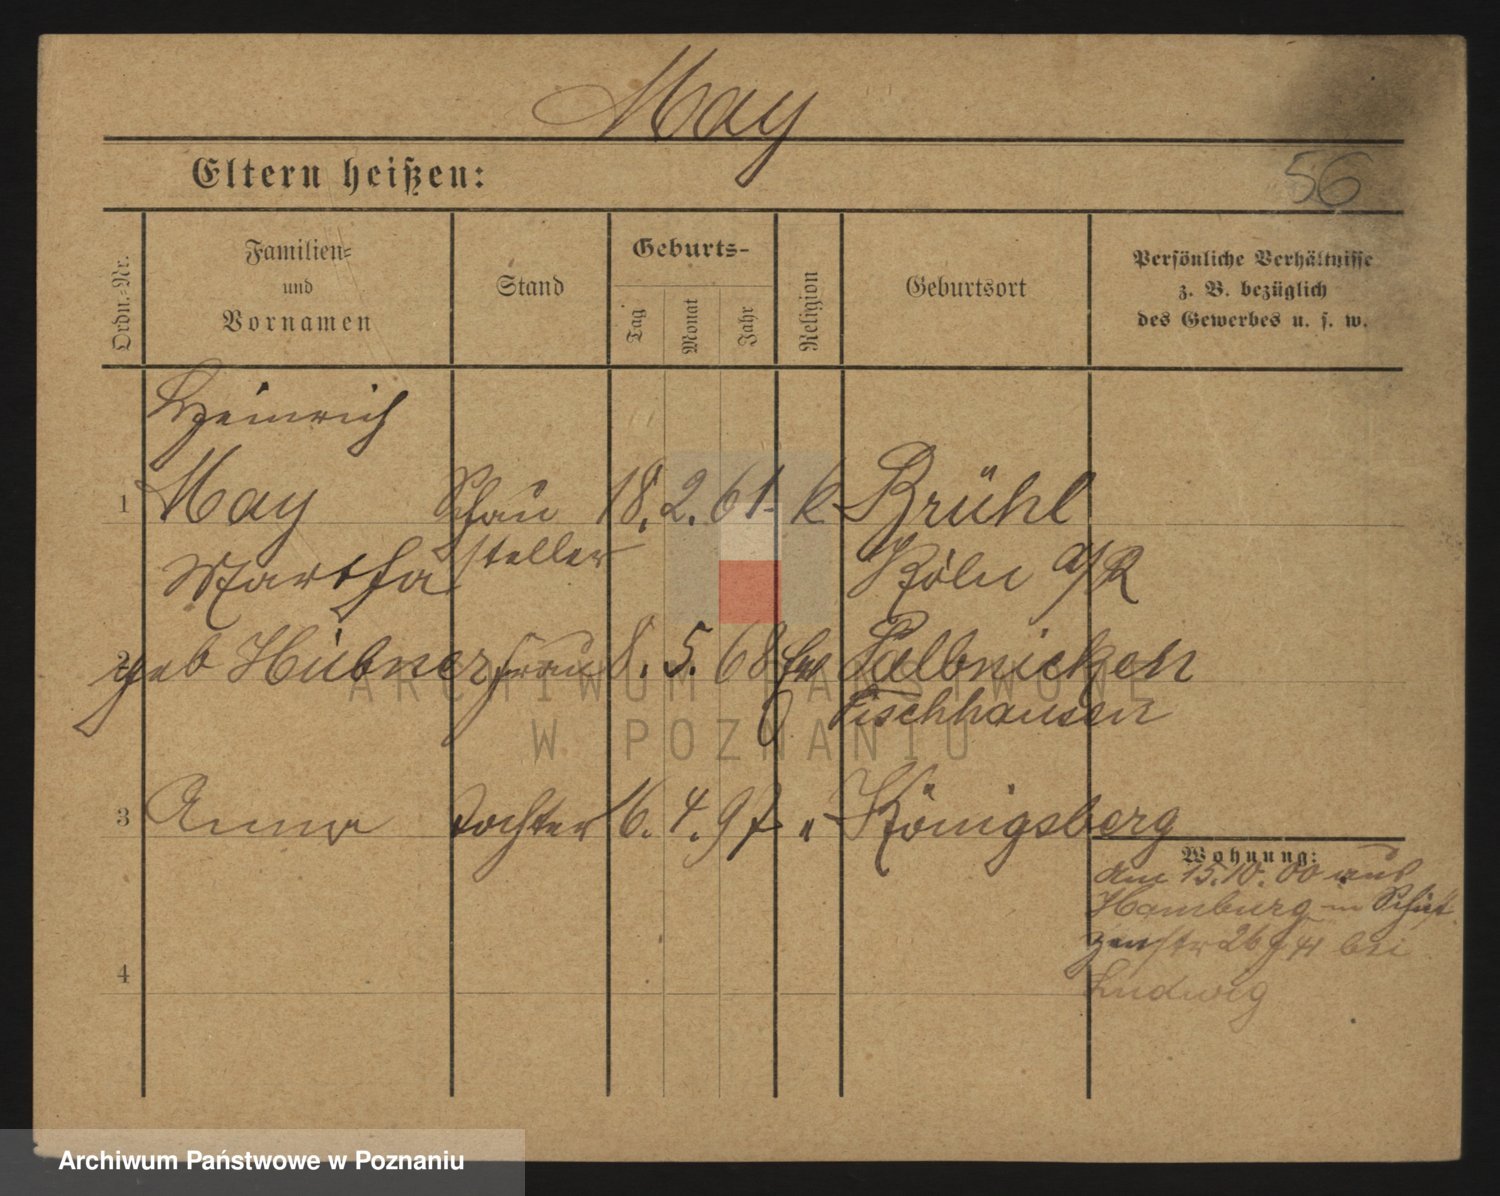 May
Eltern heißen:
56
Ordn.-Nr.
Familien-
und
Vornamen
Stand
Geburts-
Tag
Monat
Jahr
Religion
Geburtsort
Persönliche Verhältnisse
z. B. bezüglich
des Gewerbes u. s. w.
Heinrich
1 May Schau 18. 2. 61. k. Brühl
Martha steller Köln a/R
2 geb Hübner Frau 8. 5. 68 ev Palbnicken
Fischhausen
3 Anna Tochter 16. 4. 97 " Königsberg
Wohnung:
am 15.10.00 aus
Hamburg in Schüt
zenstr 26 bei
4 Ludwig
ARCHIWUM PAŃSTWOWE
W POZNANIU
Archiwum Państwowe w Poznaniu